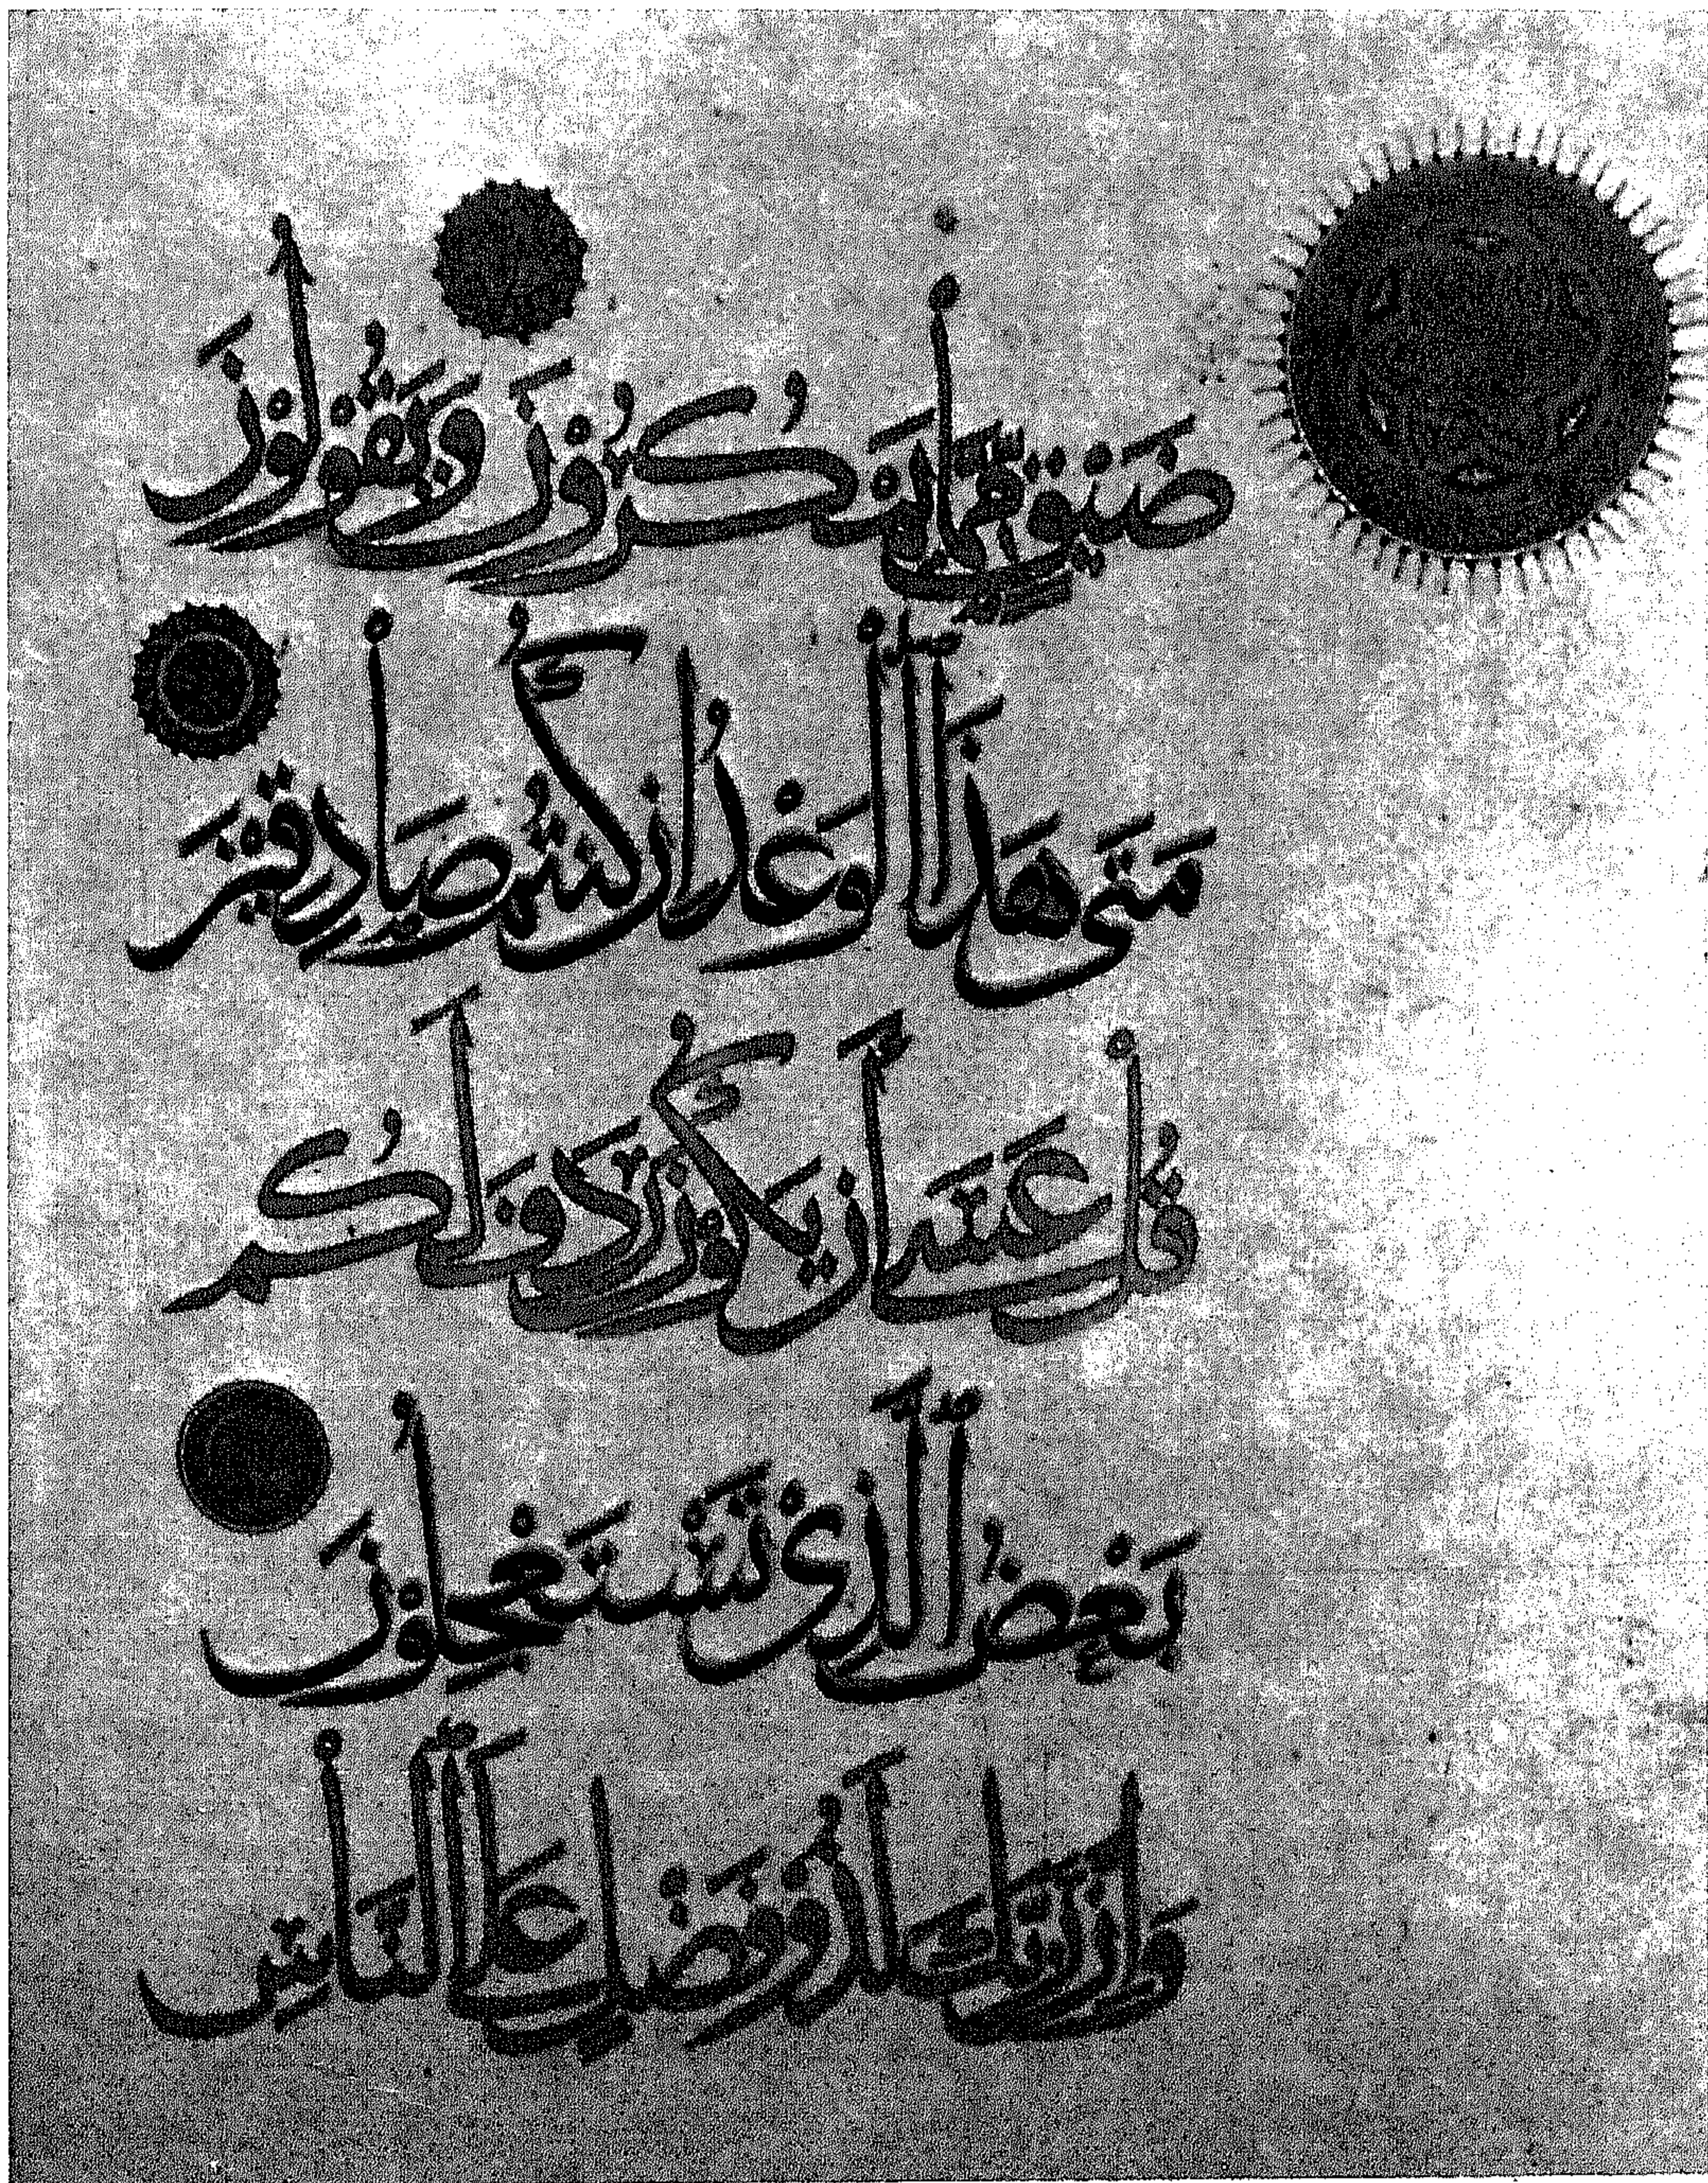 ضَيْقٍ مِّمَّا يَمْكُرُونَ وَيَقُولُونَ
مَتَى هَذَا الْوَعْدُ إِنْ كُنْتُمْ صَادِقِينَ
قُلْ عَسَى أَنْ يَكُونَ رَدِفَ لَكُمْ
بَعْضُ الَّذِي تَسْتَعْجِلُونَ
وَإِنَّ رَبَّكَ لَذُو فَضْلٍ عَلَى النَّاسِ